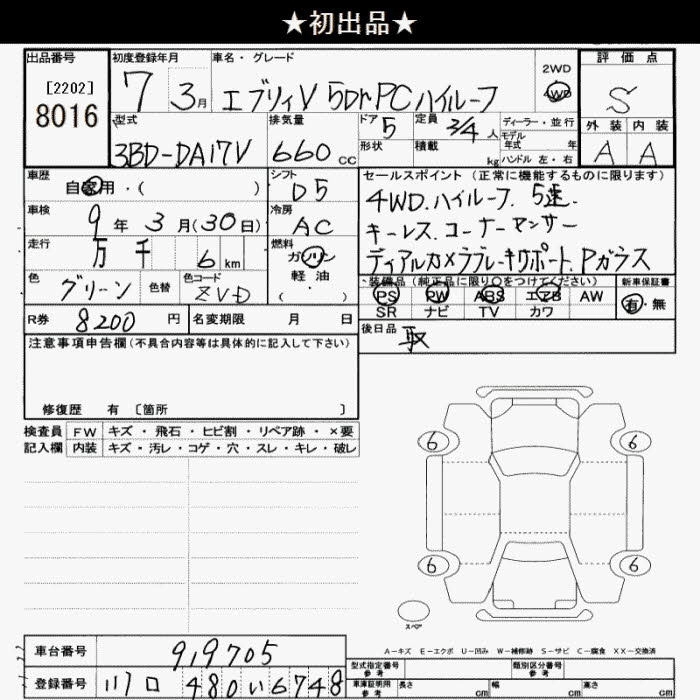 ★初出品★
出品番号 初度登録年月 車名・グレード 2WD 評価点
[2202] 7 3月 エブリィV 5Dr PC ハイルーフ 4WD S
8016 型式 排気量 ドア 定員 ディーラー・並行 外装 内装
5 2/4 人 モデル年式 年
3BD-DA17V 660 cc 形状 積載 kg ハンドル 左・右 A A
車歴 シフト セールスポイント (正常に機能するものに限ります)
自家用・( ) D5 4WD.ハイルーフ. 5速.
車検 9 年 3 月(30日) 冷房 AC キーレス.コーナーセンサー
走行 万 千 6 km 燃料 ガソリン デュアルカメラブレーキサポート.Pガラス
軽油
色 グリーン 色替 色コード ZVD ( ) 装備品 (純正品に限り○をつけてください) 新車保証書
PS PW ABS エアB AW 有・無
R券 8200 円 名変期限 月 日 SR ナビ TV カワ
注意事項申告欄(不具合内容等は具体的に記入して下さい) 後日品 取
修復歴 有 〔箇所 〕
検査員 FW キズ・飛石・ヒビ割・リペア跡・×要
記入欄 内装 キズ・汚レ・コゲ・穴・スレ・キレ・破レ
6 6
6 6
スペア
A-キズ E-エクボ U-凹み W-補修跡 S-サビ C-腐食 XX-交換済
車台番号 919705 型式指定番号 参考 類別区分番号 参考
登録番号 川口 480い6748 車庫証明用 参考 長さ cm 幅 cm 高さ cm